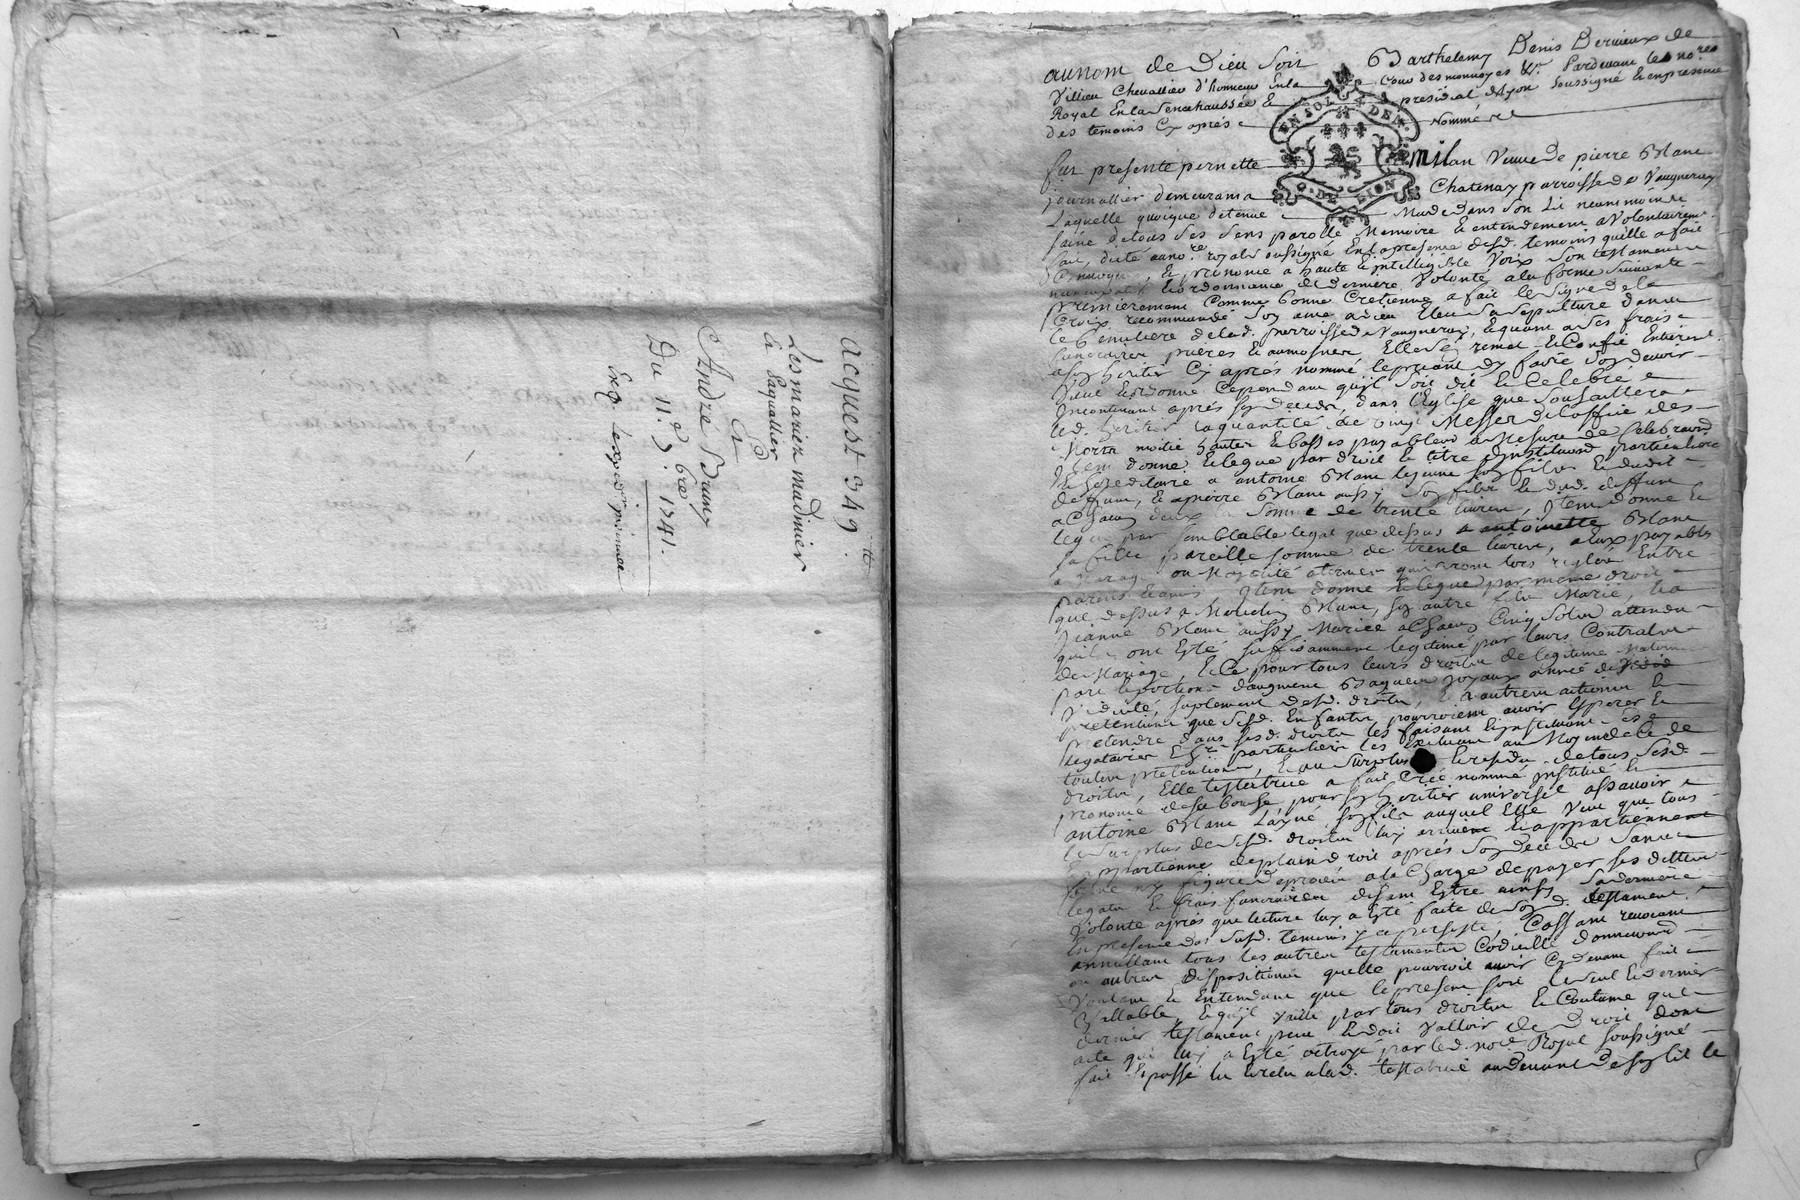 acquest 349.tt
Les mariez mudinier
& paquallier
Et
André Brun
Du 11.e 9.bre 1741.
Exp.
au nom de Dieu soit Barthelemy Denis Dervieux de
Villieu Chevallier d'honneur en la Cour des monnoyes &c. Pardevant les no.res
Royal En la Senechaussée & presidial de Lyon soussigné & en presence
des temoins Cy aprés nommé
EN SOL 4 DEN.
G. DE LION
fut presente pernette milan Veuve de pierre Blanc
journallier demeurant a Chatenay parroisse de Vaugneray
Laquelle quoique detenue Malade dans son Lit neanmoins
saine de tous ses sens parolle Memoire & entendement a Volontairemt.
fait, dicté au no.re royal soussigné En la presence desd. temoins quelle a fait
& prononcé a haute & intelligible Voix son testament
nuncupatif & ordonnance de derniere Volonté a la forme suivante
premierement Comme bonne Cretienne a fait le signe de la
Croix recommandé son ame a dieu Eleu sa sepulture dans
le Cemitiere de lad. parroisse de Vaugneray, & quant a ses frais
funeraires prieres & aumosnes, Elle s'en remet & Confie Entierement
a son heritier Cy aprés nommé le priant d'en faire son devoir
Veut & ordonne Cependant qu'il soit dit & Celebré
Incontinant aprés son deceds, dans l'Eglise que souhaittera
led. heritier la quantité de vingt Messes de l'office des
Morts moitié hautes & basses payables a Mesure de Celebration
Item donne & legue par droit & titre d'institution particuliere
& hereditaire a antoine Blanc le jeune son fils & dudit
deffunt, & a pierre Blanc aussy son fils & dud. deffunt
a Chacun deux la somme de trente livres, Item donne &
legue par semblable legat que dessus a antoinette Blanc
sa fille pareille somme de trente livres, a eux payables
a Mariage ou Majorité a termes qui seront lors reglés Entre
parens & amis, Item donne & legue par meme droit
que dessus a Blanc, son autre fille Marié, & a
Jeanne Blanc aussy Mariée a Chacun Cinq sols attendu
quils ont Esté suffisamment legitimé par leurs Contrats
de Mariage, & Ce pour tous leurs droits de legitime Maternelle
part & portion d'augment Bagues joyaux année de
Viduité, suplement desd. droits, & a autres actions &
pretentions que sesd. Enfants pourroient avoir Esperer &
pretendre dans sesd. droits les faisant & instituant ses
legataires & h.rs particuliers les Excluant au Moyen de Ce de
toutes pretentions, & au surplus & residu de tous sesd.
droits, Elle testatrice a fait Créé nommé institué &
prononcé de sa bouche pour son heritier universel assavoir
antoine Blanc L'ayné, son fils auquel Elle Veut que tous
le surplus de sesd. droits luy arrivent & appartiennent
appartienne de plain droit aprés son deceds sans
figure de procés a la Charge de payer ses dettes
legats & frais funeraires disant Estre ainsy sa derniere
Volonté aprés que lecture luy a Esté faite de son d. testament,
En presence des susd. temoins y a persisté, Cassant revocant
annullant tous les autres testaments Codicille donnations
ou autres dispositions quelle pourroit avoir Cy devant fait
Voulant & Entendant que le present soit le seul & dernier
Vallable, & qu'il vaille par tous droits & Coutume que
dernier testament peut & doit Valloir de Droit dont
acte qui luy a Esté octroyé par led. no.re Royal soussigné
fait & passé lu & relu a lad. testatrice au devant de son lit le